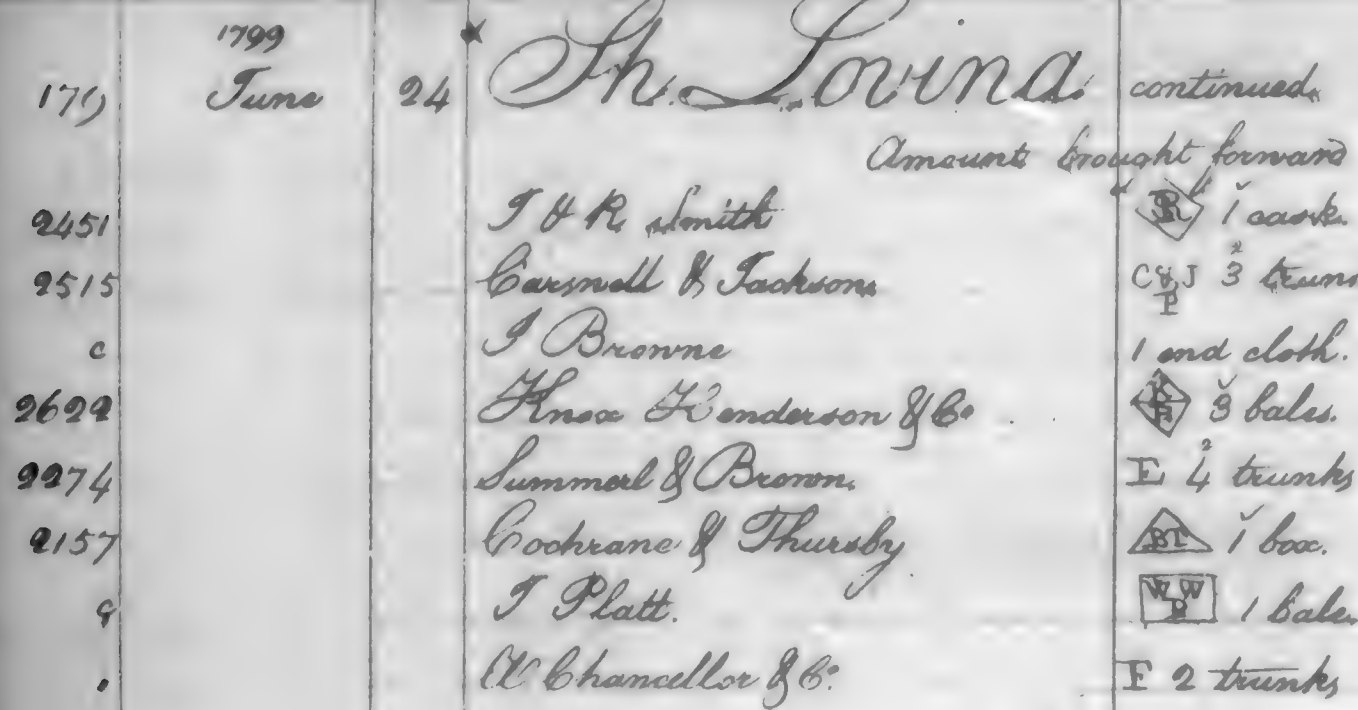 1799
179 June 24 Sh. Lovina continued
Amount brought forward
2451 J & R Smith SR 1 cask.
2515 Carswell & Jackson C&J P 2 3 trun
c J Browne 1 end cloth.
2622 Knox Henderson & Co 3 bales.
2274 & Brown. 2 4 trunks
2157 Cochrane & Thursby BT 1 box.
J Platt. WW 1 bale
Chancellor & Co. 2 trunks